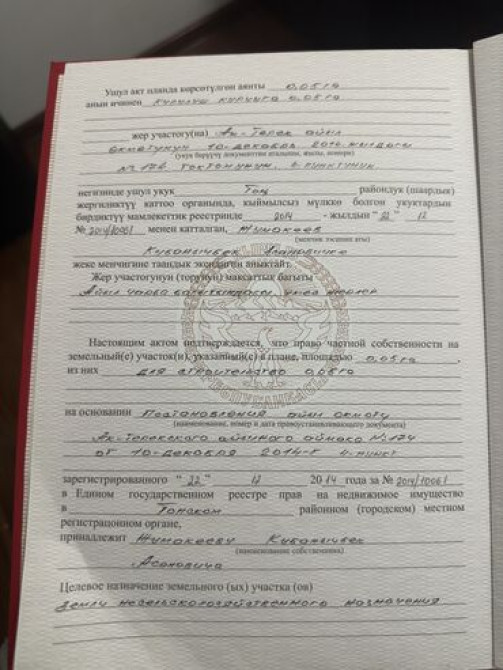 Ушул акт планда көрсөтүлгөн аянты 0,05 га
анын ичинен курулуш курууга 0,05 га
жер участогу(на) Ак-Терек айыл
өкмөтүнүн 10-декабрь 2014-жылдагы
(укук берүүчү документтин аталышы, жылы, номери)
№ 174 токтомунун, 4-пунктунун
негизинде ушул укук Тоң райондук (шаардык)
жергиликтүү каттоо органында, кыймылсыз мүлккө болгон укуктардын
бирдиктүү мамлекеттик реестринде 2014 - жылдын " 22 " 12
№ 2014/10061 менен катталган, Жумакеев
(менчик ээсинин аты)
Кубанычбек
жеке менчигине таандык экендигин аныктайт.
Жер участогунун (торунун) максаттык багыты
Айыл чарба жерлер
Настоящим актом подтверждается, что право частной собственности на
земельный(е) участок(и), указанный(е) в плане, площадью 0,05 га ,
из них для строительство 0,05 га
на основании Постановления айыл окмоту
(наименование, номер и дата правоустанавливающего документа)
Ак-Терекского айылного аймака № 174
от 10-декабря 2014-г 4-пункт
зарегистрированного " 22 " 12 2014 года за № 2014/10061
в Едином государственном реестре прав на недвижимое имущество
в Тонском районном (городском) местном
регистрационном органе,
принадлежит Жумакееву Кубанычбек
(наименование собственника)
Асановича
Целевое назначение земельного (ых) участка (ов)
Земли несельскохозяйственного назначения